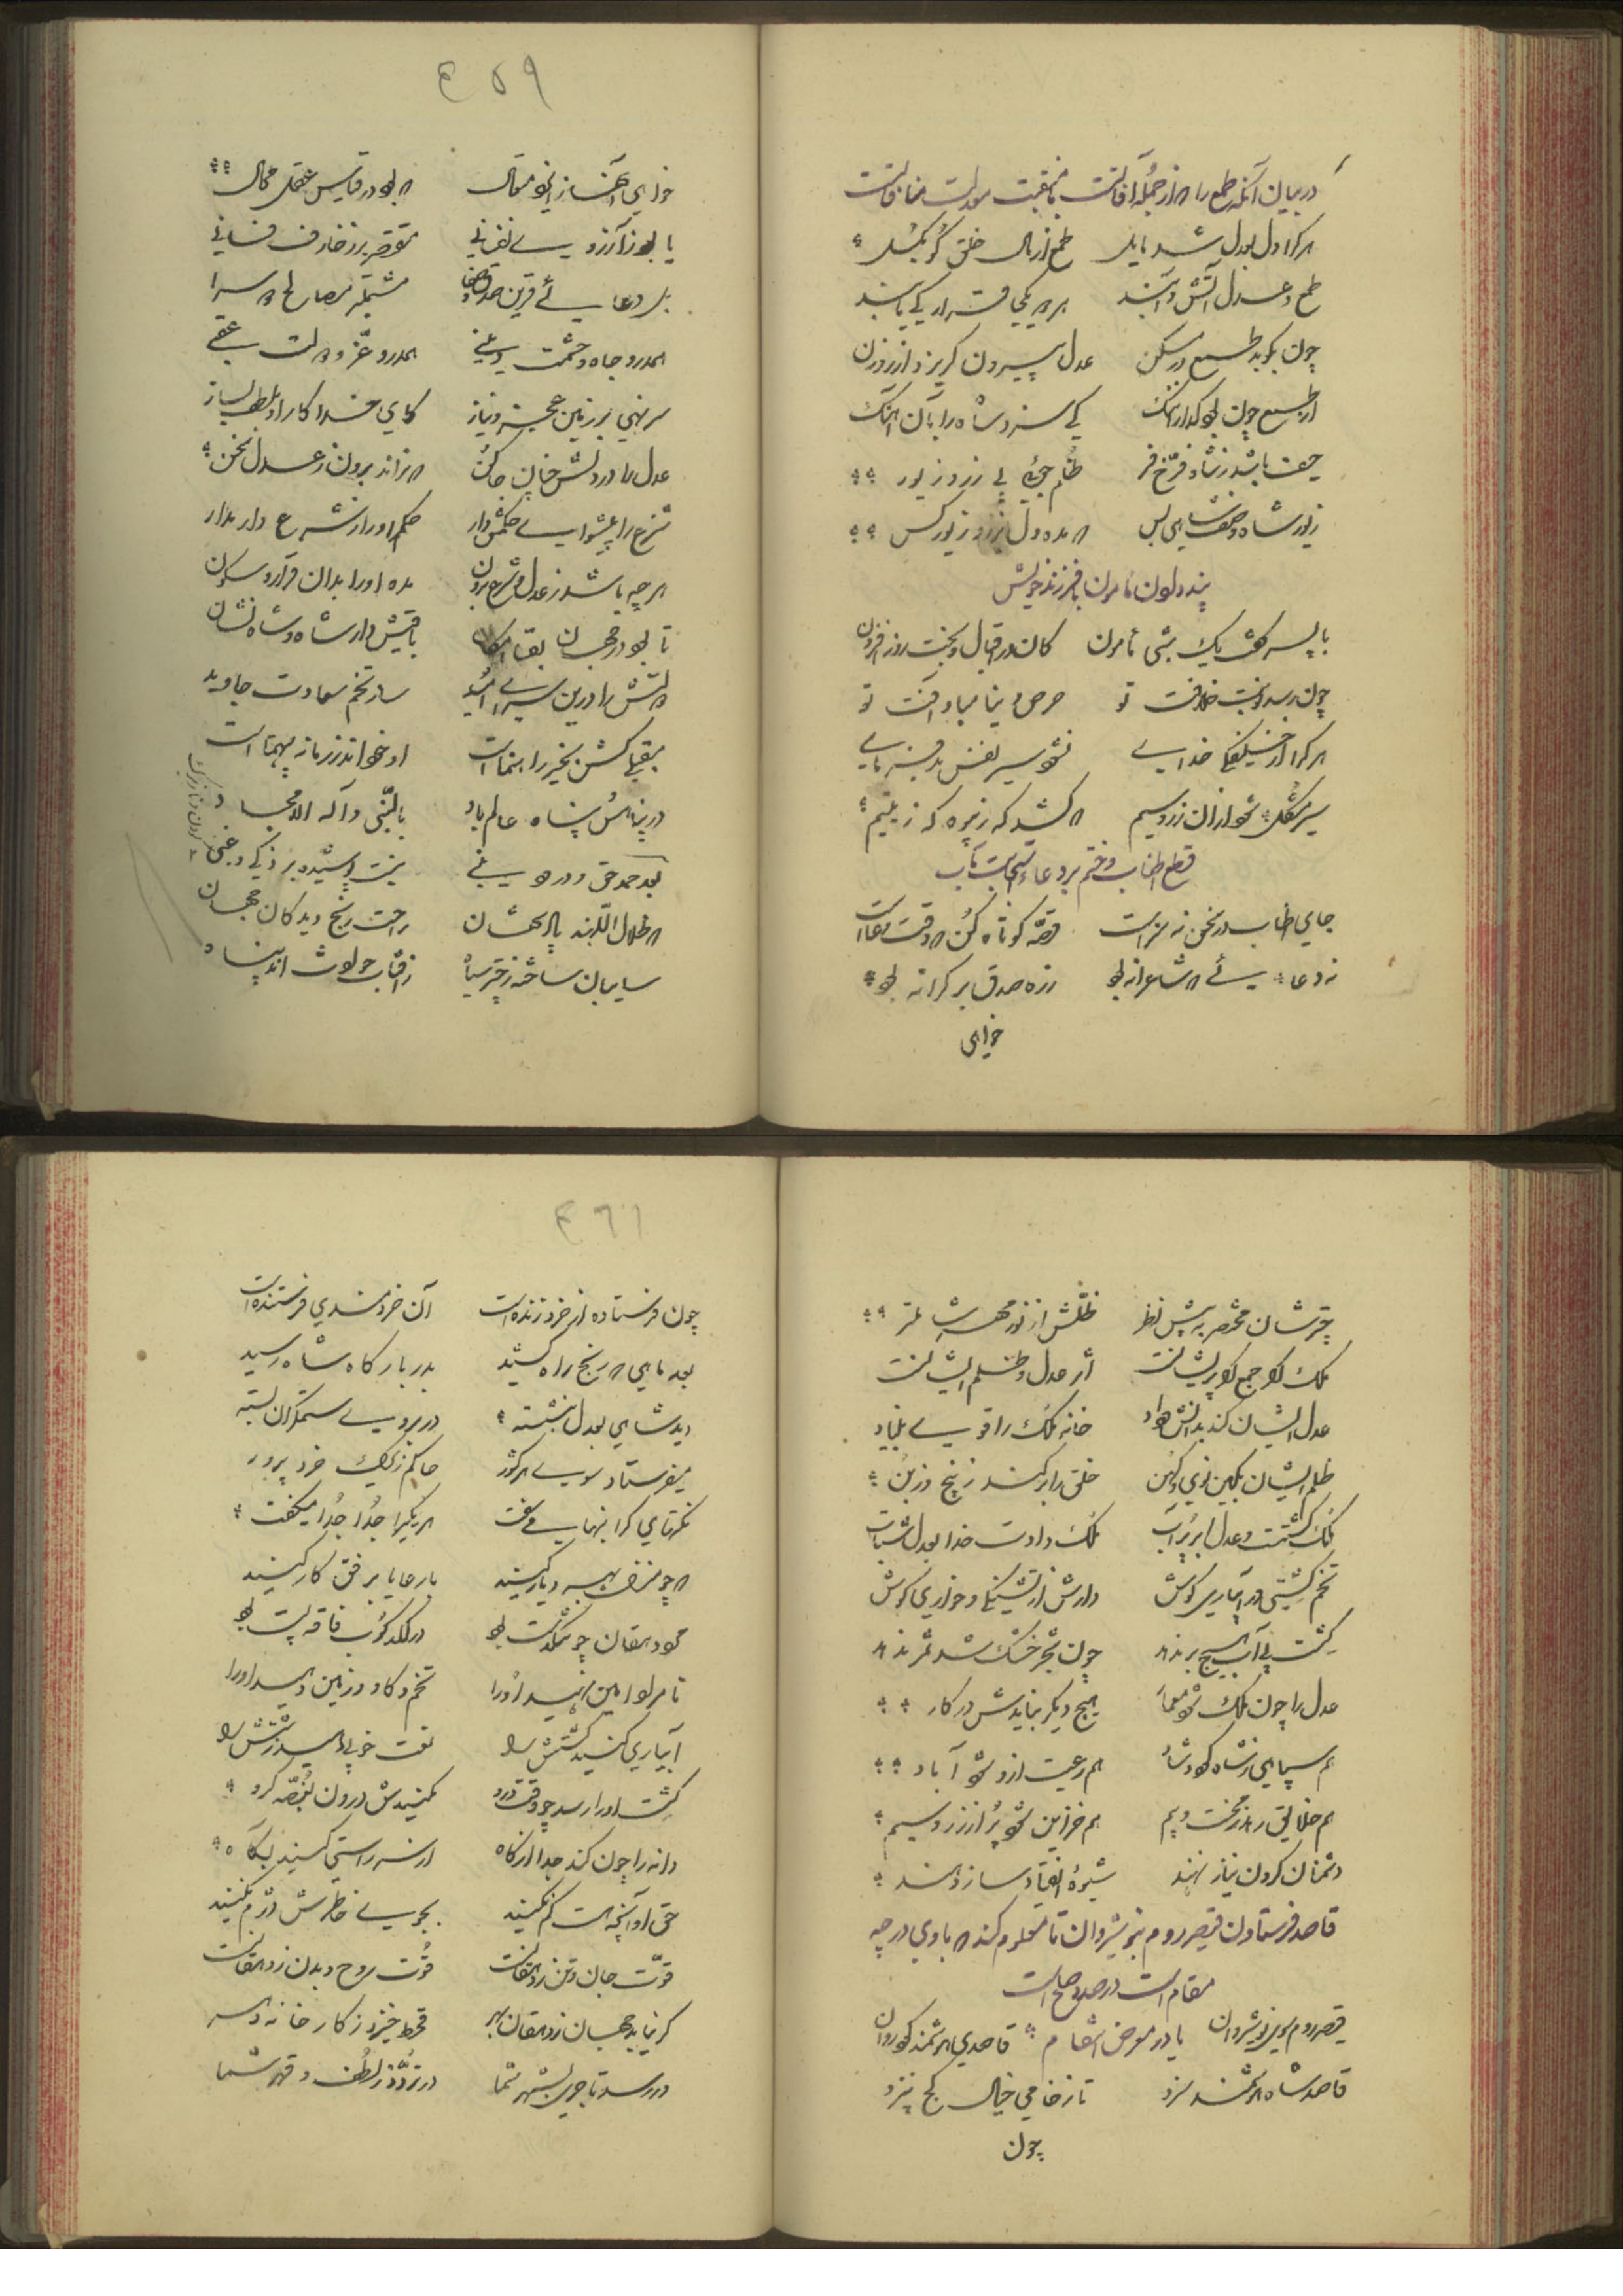 در بیان آنکه طمع را که از جمله آفاتست بمنقبت عدالت منافاتست
هر کرا دل بعدل شد مایل طمع از مال خلق گو بگسل
طمع و عدل آتش و آبند هر دو یکجا قرار کی یابند
چون بکوبد طمع در مسکن عدل بیرون گریزد از روزن
از طمع چون بود گدا را ننگ کی سزد شاه را بآن آهنگ
حیف باشد ز شاه فرخ فر ظلم جویی پی زر و زیور
زیور شاه وصف شاهی بس که مده دل بزر و زیور کس
پند دادن مامون با فرزند خویش
با پسر گفت یک شبی مامون کای در اقبال و بخت روز افزون
چون رسد نوبت خلافت تو حرص دنیا مباد آفت تو
هر کرا از خلیفهای خدای نشود سیر نفس بد فرمای
سیر مشکل شود از آن زر و سیم که کشد گه ز بیوه گه ز یتیم
قطع اطناب و ختم بر دعاء مستجاب
جای اطناب در سخن نه سزاست قصه کوتاه کن که وقت دعاست
نه دعایی که شاعرانه بود زده صدق بر کرانه بود
خواهی
۴۵۹
خواهی آهنساز ایهو مقال که بود در قیاس عقل محال
یا بود ز آرزوی نفسانی مقتصر بر زخارف فانی
بل دعایی قرین صدق و صفا مشتمل بر مصالح دو سرا
هم درو جاه و حشمت دنیی هم درو عز و دولت عقبی
سر نهی بر زمین عجز و نیاز کای خدا کار او بلطف بساز
عدل را در دلش چنان جا کن که نراند برون ز عدل سخن
شرع را پیشوای حکمش دار حکم او را ز شرع دار مدار
هر چه باشد ز عدل و شرع برون مده او را بدان قرار و سکون
تا بود در جهان بقا امکان باقیش دار شاه و شاه نشان
دولتش را درین سرای امید ساز تخم سعادت جاوید
بقعهای کش بخیر راهنماست او خود اندر زمانه بیهمتاست
در پناهش پناه عالم باد بالنبی و آله الامجاد
بعد حمد حق و درود نبی نیست پوشیده بر ذکی و غبی
که ظلال اللهند پادشهان راحت رنج دیدگان جهان
سایبان ساخته ز چتر سیاه ز آفتاب حوادث اند پناه
چترشان مختصر به پیش نظر ظلش از نور مهر و مه شهرتر
ملک را جمع گو پریشانست اثر عدل و ظلم ایشانست
عدل ایشان کند بدانش و داد خانه ملک را قوی بنیاد
ظلم ایشان بکین نوی و کهن خلق را بر کند ز بیخ و ز بن
ملک کشتست و عدل ابر پر آب ملک دادت خدا بعدل شتاب
تخم کشتی در آبیاری کوش دارش از تشنگی و خواری گوش
کشت بی آب هیچ بر ندهد چون شجر خشک شد ثمر ندهد
عدل را چون ملک شود معمار هیچ دیگر نبایدش در کار
هم سپاهی ز شاه گردد شاد هم رعیت ازو شود آباد
هم خلایق رهد ز محنت و بیم هم خزاین شود پر از زر و سیم
دشمنان گردن نیاز نهند شیوه انقیاد ساز دهند
قاصد فرستادن قیصر روم بنوشیروان تا معلوم کند که با وی در چه
مقام است در صلاح است
قیصر روم سوی نوشروان یا در معرض انتقام قاصدی هوشمند کرد روان
قاصد شاه هوشمند سزد تا ز خامی خیال کج نپزد
چون
۴۶۱
چون فرستاده از خرد زنده است آن خردمندی فرستنده است
بعد ماهی که رنج راه کشید بدر بارگاه شاه رسید
دید شاهی بعدل بنشسته در بروی ستمگران بسته
میفرستاد سوی هر کشور حاکم زیرک خرد پرور
نکتهای گرانبها میسفت هر یکی را جدا جدا میگفت
که چو منزل بهر دیار کنید با رعایا برفق کار کنید
مرد دهقان چو تنگدست بود در لگدکوب فاقه پست بود
تا مرادا معین شوید او را تخم و گاو و زمین دهید او را
آبیاری کنید کشتش را نعت خوبی دهید زشتش را
کشت او را رسد چو وقت درو مکنیدش درون بغصه گرو
دانه را چون کند جدا از کاه از سر راستی کنید نگاه
حق او آنچه هست کم نکنید بجوی خاطرش دژم نکنید
قوت جان و تن ز دهقانست قوت روح و بدن ز دهقانست
گر نیاید جهان ز دهقان بهر قحط خیزد ز کارخانه دهر
در رسد تاجری بشهر شما در تردد ز لطف و قهر شما